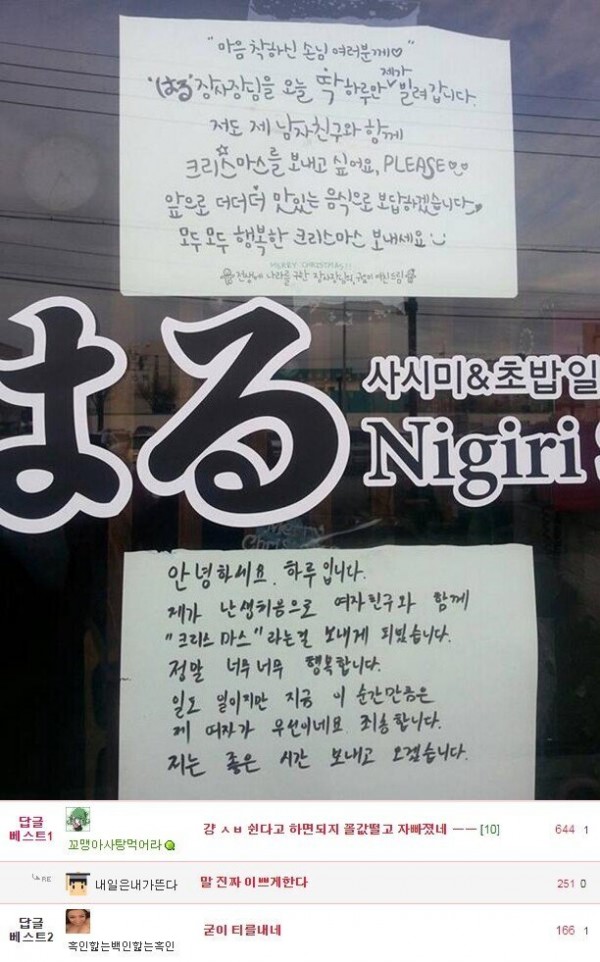 "마음 착하신 손님 여러분께♡"
'はる' 장사장님을 오늘 딱 하루만 제가 빌려 갑니다.
저도 제 남자친구와 함께
크리스마스를 보내고 싶어요, PLEASE♡
앞으로 더더더 맛있는 음식으로 보답하겠습니다
모두 모두 행복한 크리스마스 보내세요
MERRY CHRISTMAS!!
전생에 나라를 구한 장사장님의 여친 드림
はる
사시미&초밥일
Nigiri
Merry
Chris
안녕하세요. 하루입니다.
제가 난생처음으로 여자친구와 함께
"크리스마스"라는걸 보내게 되었습니다.
정말 너무너무 행복합니다.
일도 일이지만 지금 이 순간만큼은
제 여자가 우선이네요. 죄송합니다.
저는 좋은 시간 보내고 오겠습니다.
답글 베스트1
꼬맹아사탕먹어라
걍 ㅅㅂ 쉰다고 하면되지 꼴값떨고 자빠졌네 ㅡㅡ [10]
644 1
RE
내일은내가뜬다
말 진짜 이쁘게한다
251 0
답글 베스트2
흑인핥는백인핥는흑인
굳이 티를내네
166 1